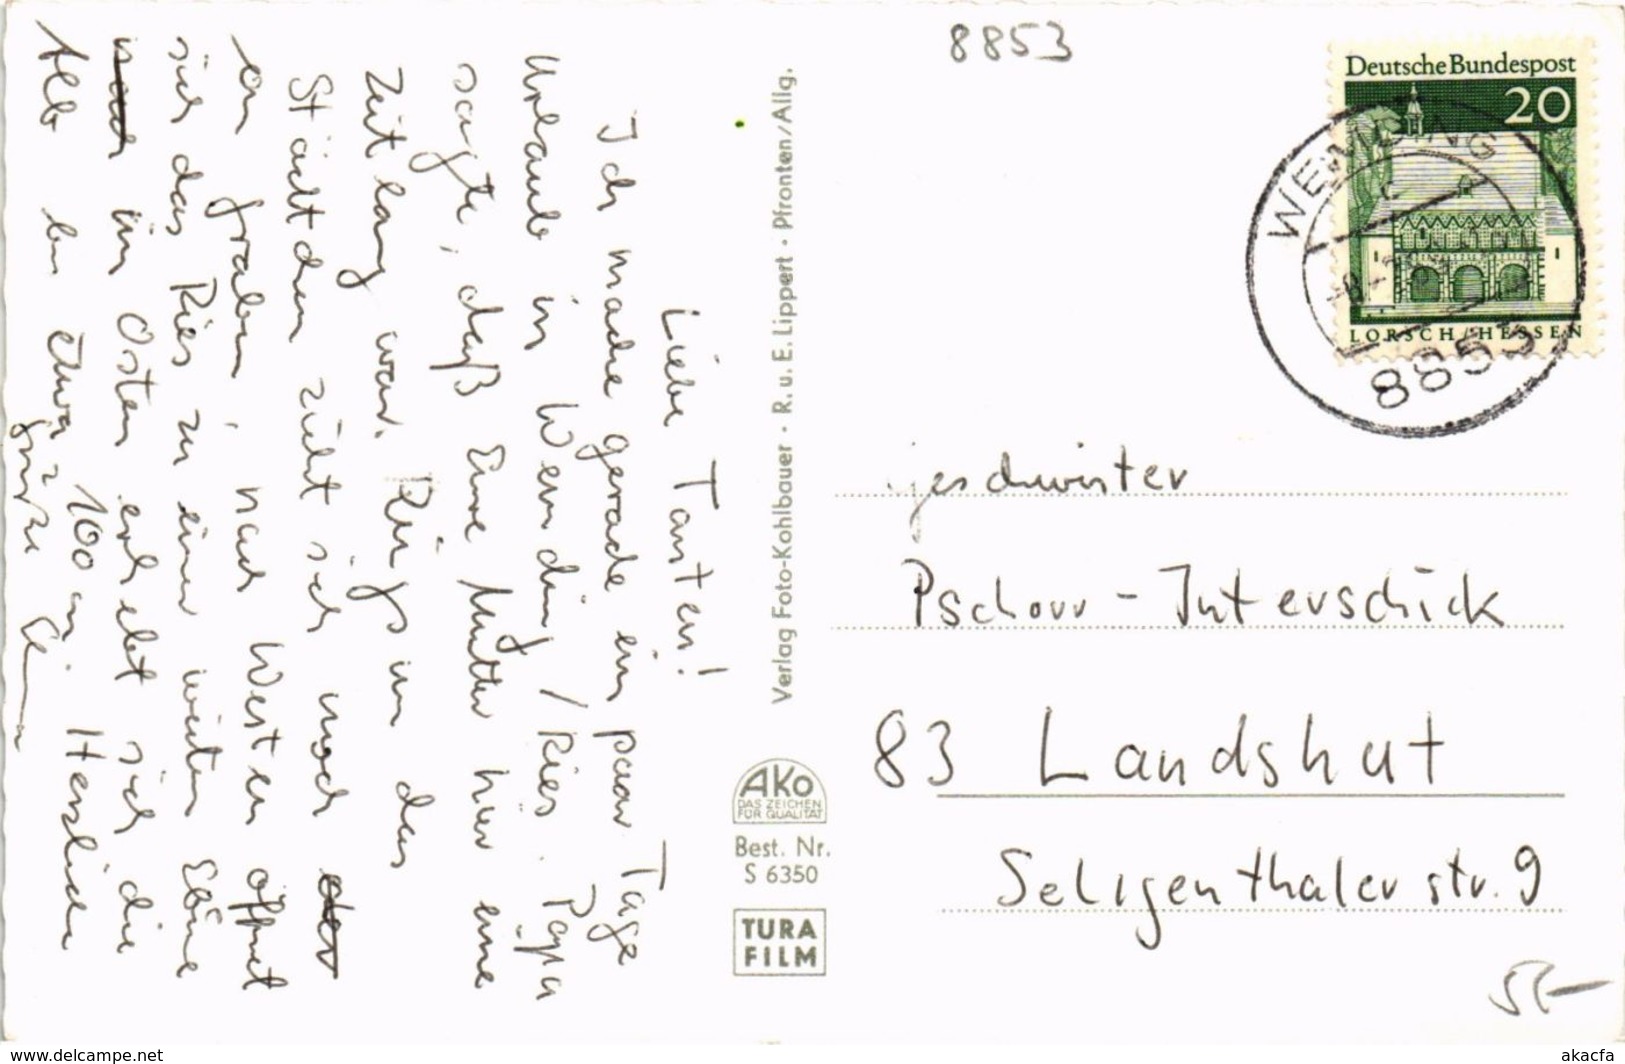 8853
Deutsche Bundespost
20
LORSCH/HESSEN
WEMDING
8853
Liebe Tanten!
Ich mache gerade ein paar Tage
Urlaub in Wemding/Ries. Papa
sagte, daß Eure Mutter hier eine
Zeitlang war. Rings um das
Städtchen zieht sich noch der
ein Graben, nach Westen öffnet
sich das Ries zu einer weiten Ebene
nach im Osten erhebt sich die
Alb bis etwa 100 m. Herzliche
Grüße
Verlag Foto-Kohlbauer · R. u. E. Lippert · Pfronten/Allg.
AKO
DAS ZEICHEN
FÜR QUALITÄT
Best. Nr.
S 6350
TURA
FILM
Geschwister
Pschorr-Interschick
83 Landshut
Seligenthalerstr. 9
www.delcampe.net
akacfa